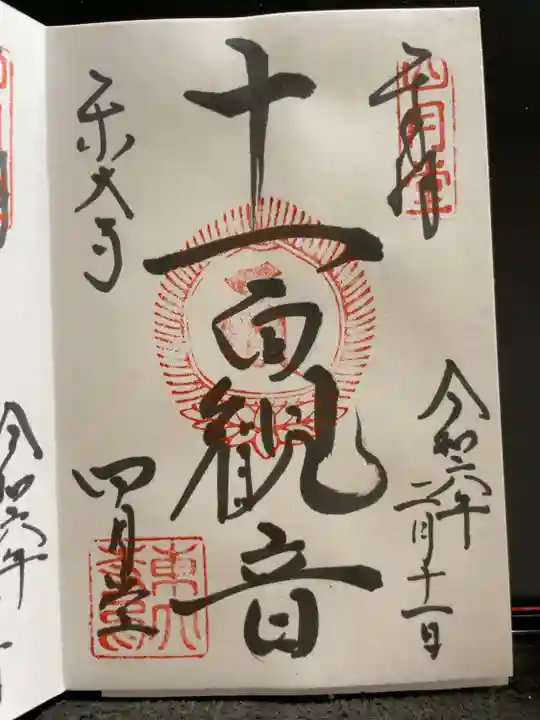 奉拝
四月堂
令和六年
二月十一日
十一面観音
東大寺
四月堂
令和六年